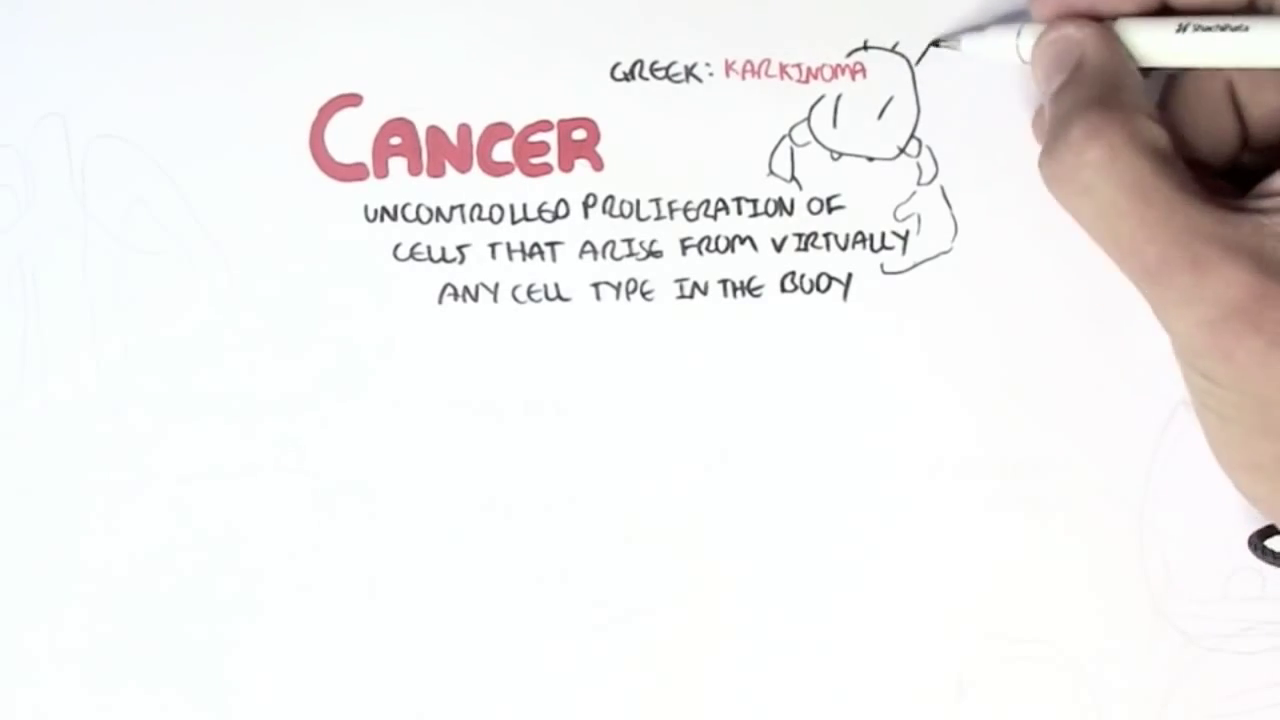 GREEK: KARKINOMA
CANCER
UNCONTROLLED PROLIFERATION OF
CELLS THAT ARISE FROM VIRTUALLY
ANY CELL TYPE IN THE BODY
Shachihata